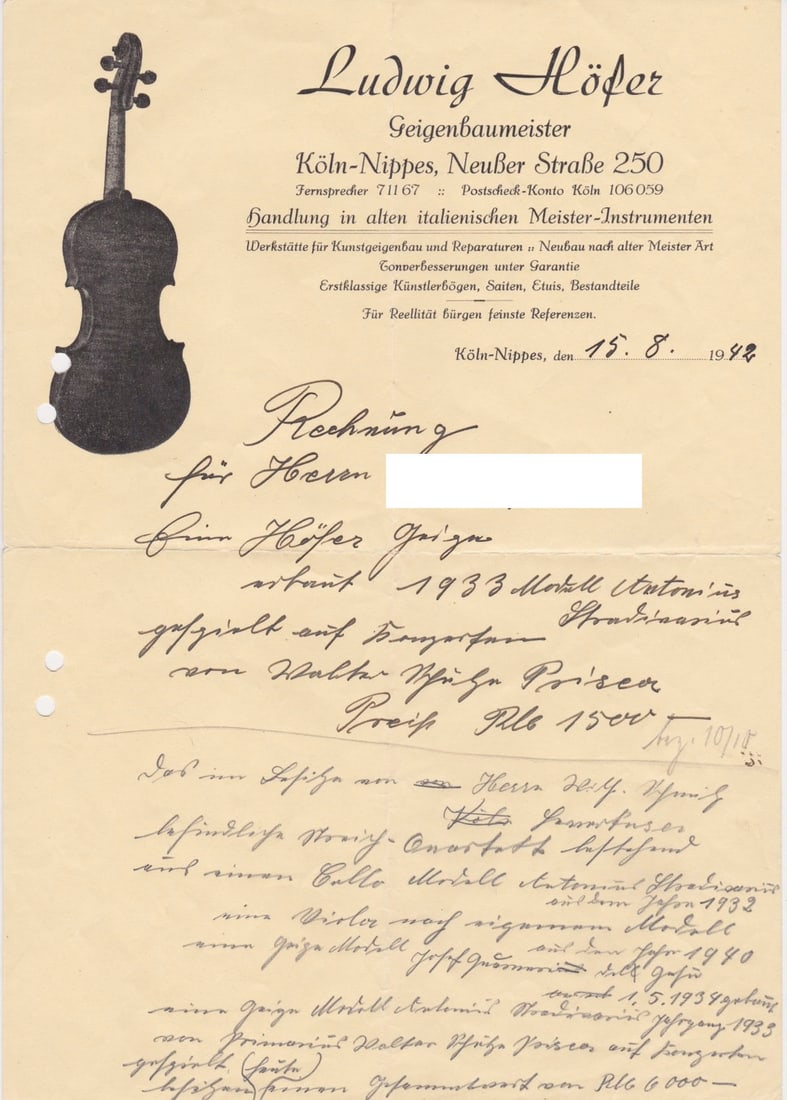 Ludwig Höfer
Geigenbaumeister
Köln-Nippes, Neußer Straße 250
Fernsprecher 71167 :: Postscheck-Konto Köln 106059
Handlung in alten italienischen Meister-Instrumenten
Werkstätte für Kunstgeigenbau und Reparaturen :: Neubau nach alter Meister Art
Tonverbesserungen unter Garantie
Erstklassige Künstlerbögen, Saiten, Etuis, Bestandteile
Für Reellität bürgen feinste Referenzen.
Köln-Nippes, den 15. 8. 1942
Rechnung
für Herrn
Eine Höfer Geige
erbaut 1933 Modell Antonius
Stradivarius
gespielt auf Konzerten
von Walter Schulze Prisca
Preis RM 1500
bez. 10/10
Das im Besitze von Herrn Wilh. Schmitz
Köln Leverkusen
befindliche Streich-Quartett bestehend
aus einem Cello Modell Antonius Stradivarius
aus dem Jahre 1932
eine Viola nach eigenem Modell
aus dem Jahr 1940
eine Geige Modell Josef Guarnerius del Gesu
1.5.1934 gebaut
eine Geige Modell Antonius Stradivarius Jahrgang 1933
von Primarius Walter Schulze Prisca auf Konzerten
gespielt. (heute)
besitzen einen Gesammtwert von RM 6000 —